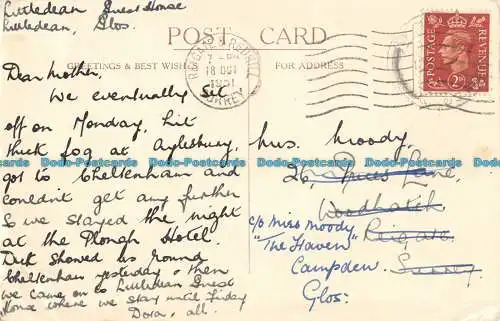 Littledean Guest House
Littledean, Glos.
POST CARD
GREETINGS & BEST WISHES
FOR ADDRESS
REIGATE & REDHILL
18 OCT
1951
SURREY
POSTAGE REVENUE
2D
Dear Mother,
We eventually set
off on Monday, hit
thick fog at Aylesbury,
got to Cheltenham and
couldn't get any further
so we stayed the night
at the Plough Hotel.
Dick showed us round
Cheltenham yesterday & then
we came on to Littledean Guest
House where we stay until Friday
Dora, all.
Mrs. Moody,
26, Lane,
Woodhatch
Reigate
Surrey
c/o Miss Moody
"The Haven"
Campden
Glos:
Docs-Postcards Docs-Postcards Docs-Postcards Docs-Postcards